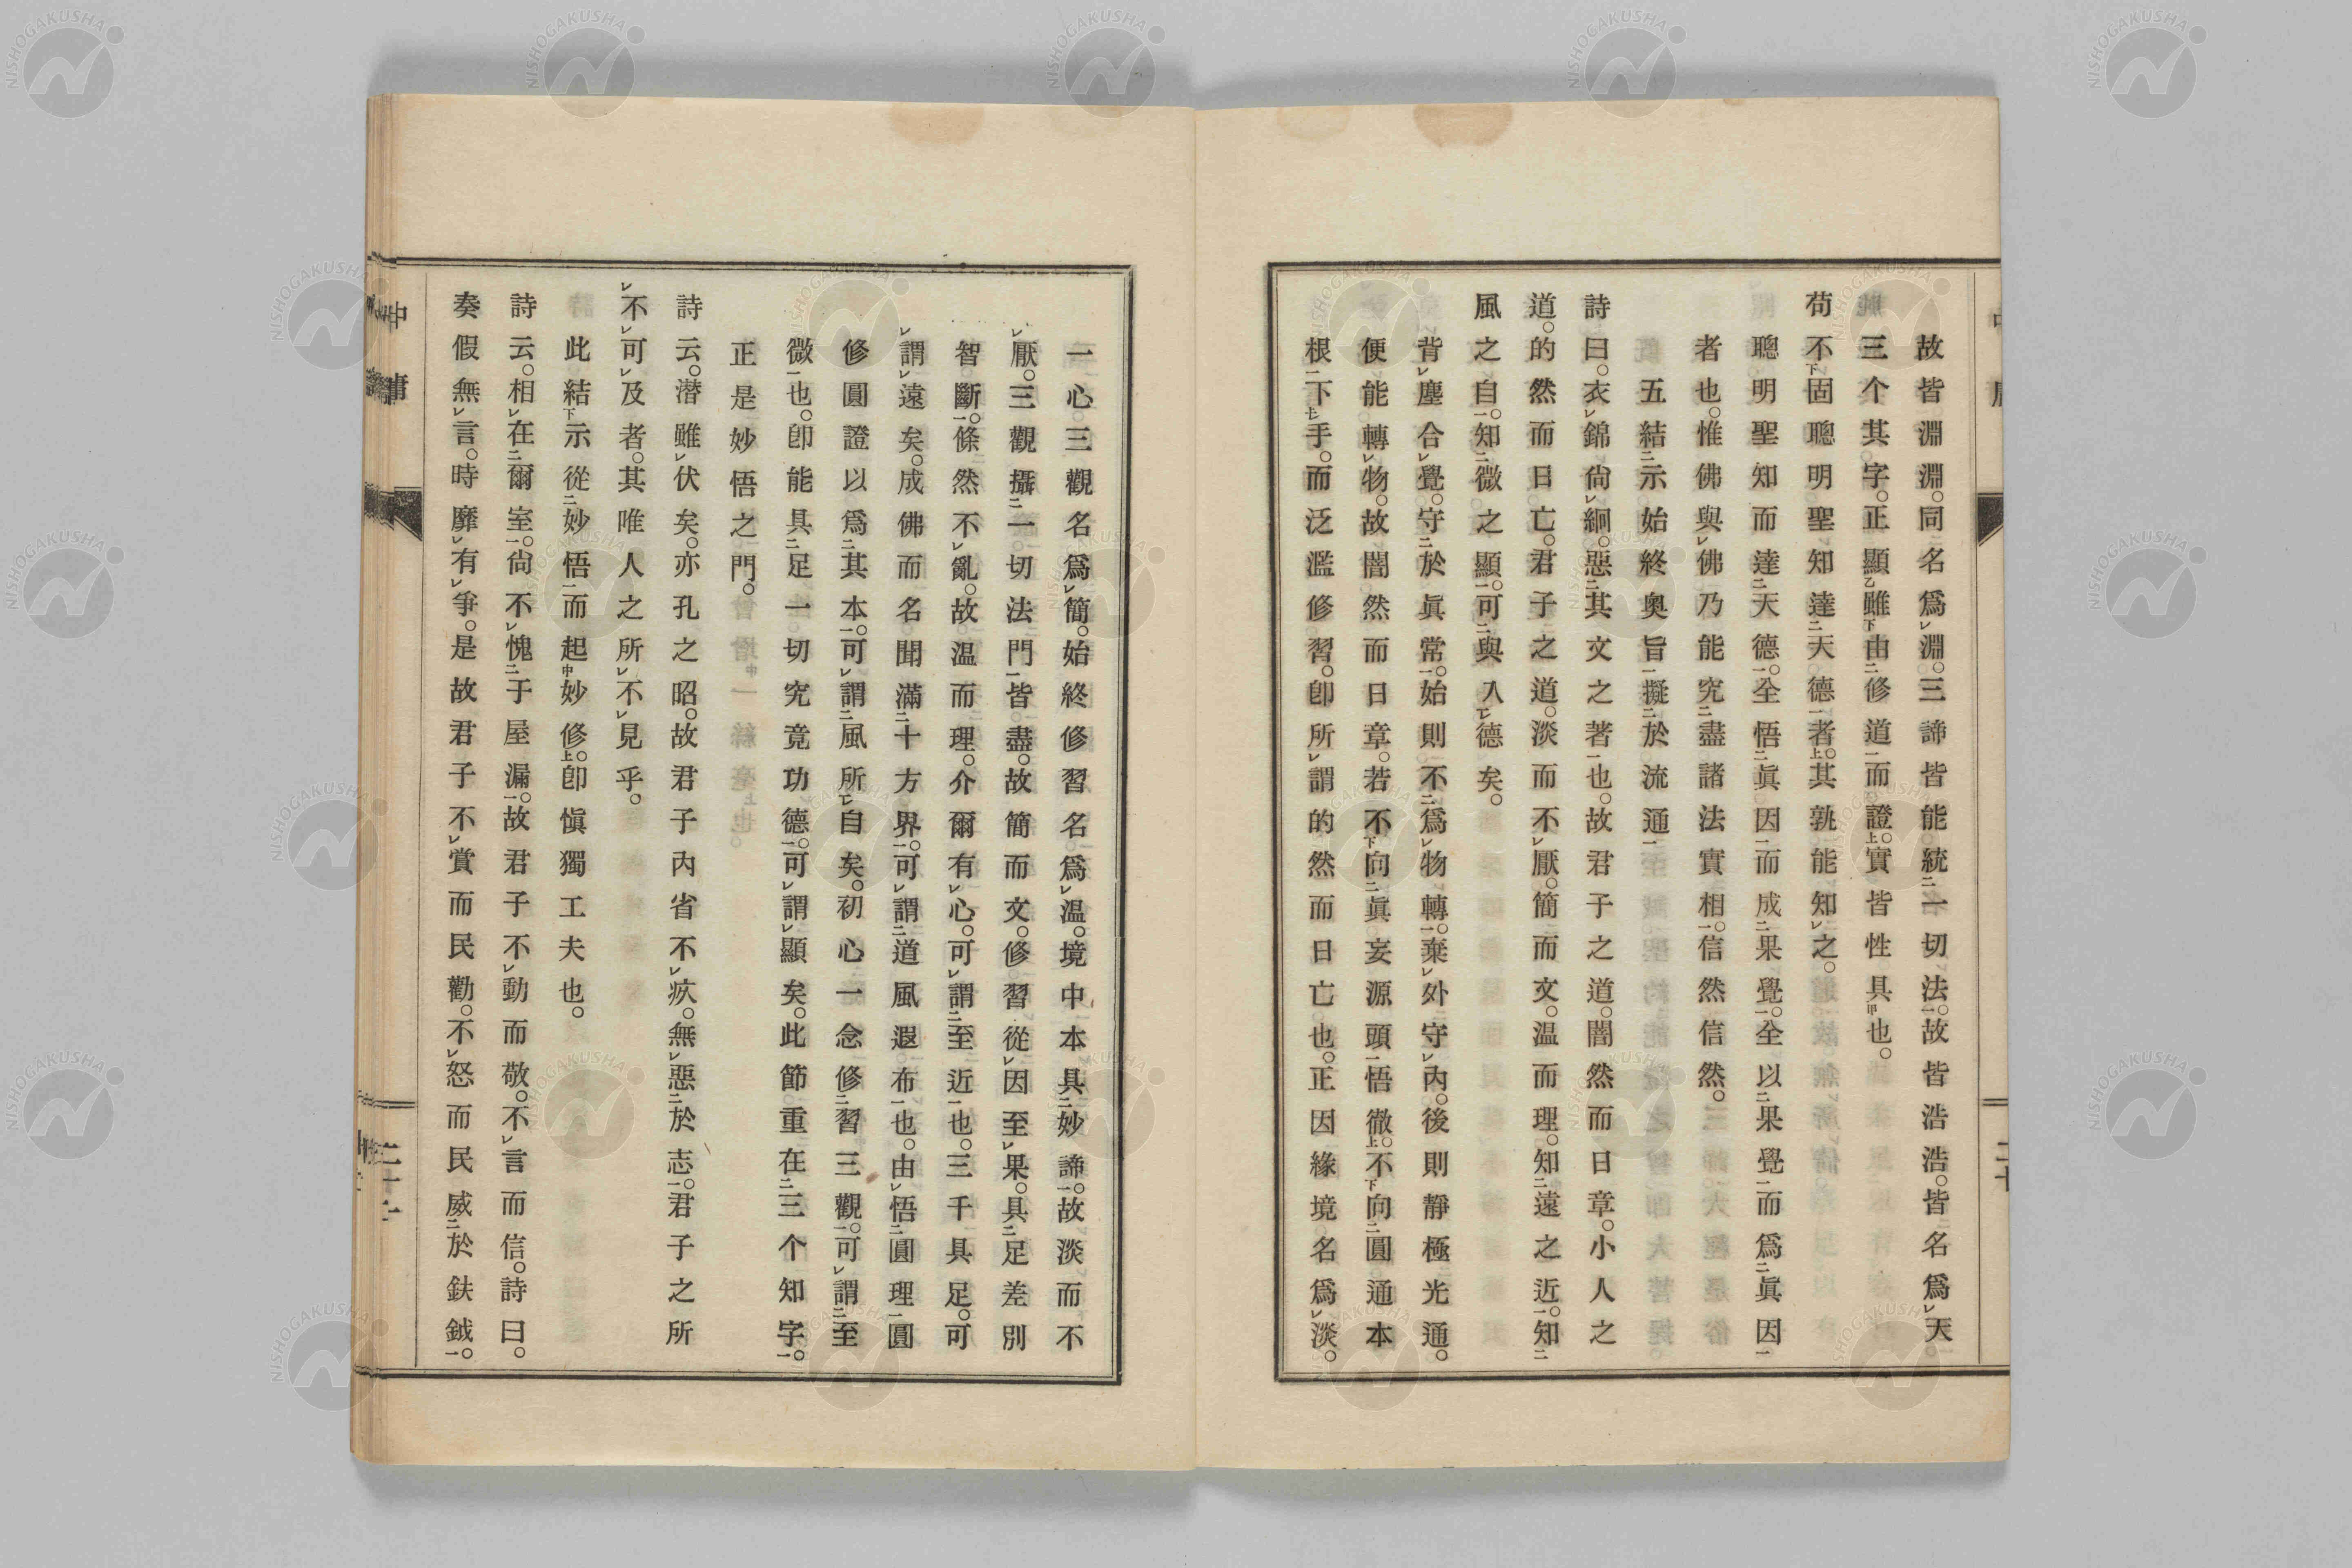 故皆淵淵。同名爲淵。三諦皆能統一切法。故皆浩浩。皆名爲天。
三个其字。正顯雖由修道而證。實皆性具也。
苟不固聰明聖知達天德者。其孰能知之。
聰明聖知而達天德。全悟眞因而成果覺。全以果覺而爲眞因
者也。惟佛與佛乃能究盡諸法實相。信然信然。
五結示始終奧旨擬於流通
詩曰。衣錦尙絅。惡其文之著也。故君子之道。闇然而日章。小人之
道。的然而日亡。君子之道。淡而不厭。簡而文。温而理。知遠之近。知
風之自。知微之顯。可與入德矣。
背塵合覺。守於眞常。始則不爲物轉。棄外守內。後則靜極光通。
便能轉物。故闇然而日章。若不向眞妄源頭悟微。不向圓通本
根下手。而泛濫修習。卽所謂的然而日亡也。正因緣境名爲淡。
一心三觀名爲簡。始終修習名爲温。境中本具妙諦。故淡而不
厭。三觀攝一切法門皆盡。故簡而文。修習從因至果。具足差別
智斷。條然不亂。故温而理。介爾有心。可謂至近也。三千具足。可
謂遠矣。成佛而名聞滿十方界。可謂道風遐布也。由悟圓理圓
修圓證以爲其本。可謂風所自矣。初心一念修習三觀。可謂至
微也。卽能具足一切究竟功德。可謂顯矣。此節重在三个知字。
正是妙悟之門。
詩云。潜雖伏矣。亦孔之昭。故君子內省不疚。無惡於志。君子之所
不可及者。其唯人之所不見乎。
此結示從妙悟而起妙修。卽愼獨工夫也。
詩云。相在爾室。尙不愧于屋漏。故君子不動而敬。不言而信。詩曰。
奏假無言。時靡有爭。是故君子不賞而民勸。不怒而民威於鈇鉞。
中庸
二十六